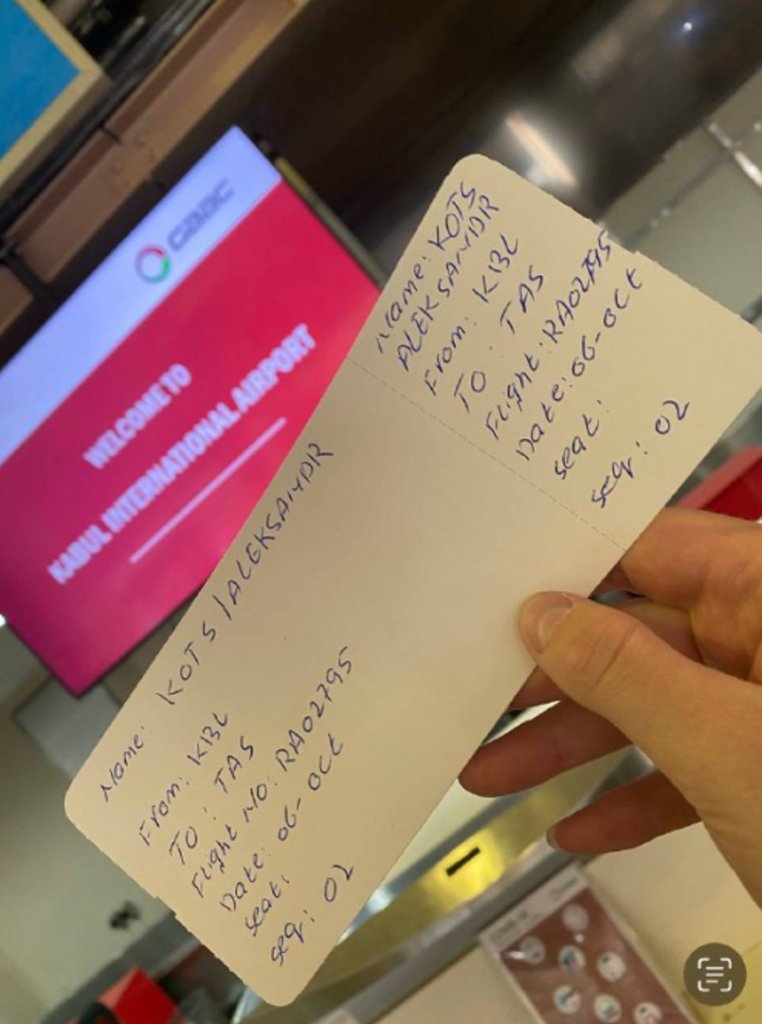 GAAC
WELCOME TO
KABUL INTERNATIONAL AIRPORT
Name: KOTS / ALEKSANDR
From: KBL
TO: TAS
Flight NO: RA02795
Date: 06-Oct
seat:
seq: 02
Name: KOTS
ALEKSANDR
From: KBL
TO: TAS
Flight: RA02795
Date: 06-Oct
seat:
seq: 02